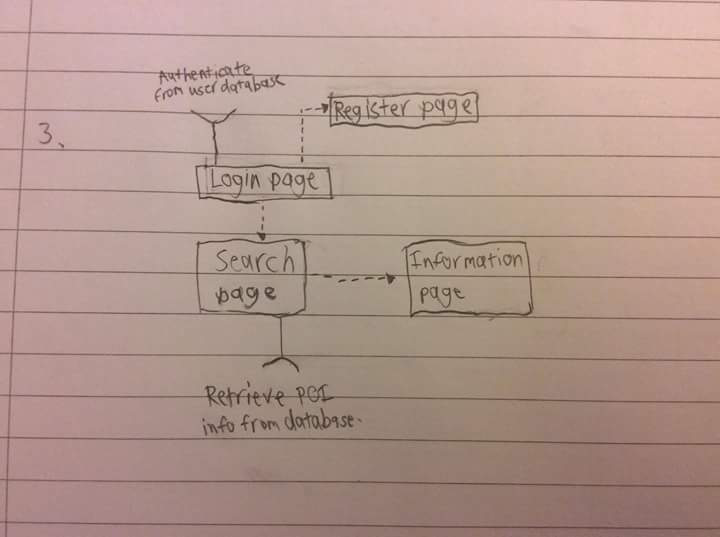 Authenticate
from user database
Register page
3.
Login page
Search
page
Information
page
Retrieve POI
info from database.